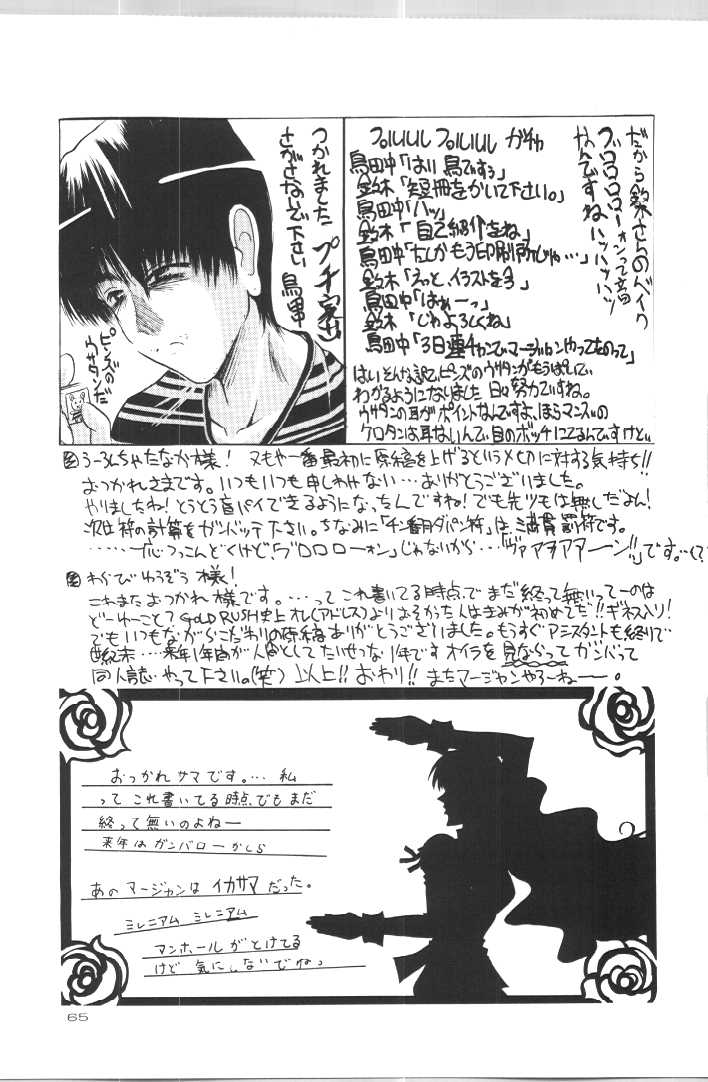 だから鈴木さんのバイク
ブロロロローォンって言
なんですねハッハッハッ
プルルルル プルルルル ガチャ
鳥田中「はい鳥ですぅ」
鈴木「短冊をかいて下さい。」
鳥田中「ハッ」
鈴木「自己紹介をね」
鳥田中「たしかもう印刷所じゃ…」
鈴木「えっと、イラストを今」
鳥田中「はぁーっ」
鈴木「じゃよろしくね」
鳥田中「3日連チャンでマージャンやってたのって」
はいそんな訳でピンズのウサタンがもうぱいで
わかるようになりました 日々努力ですね。
ウサタンの耳がポイントなんですよ、ほらマンズの
ケロタンは耳ないんで目のボッチにてるんですけど、
つかれました プチ家出
さがさないで下さい 鳥田中
ピンズの
ウサタンだ
うーろんちゃたなか様! 又もや一番最初に原稿を上げるというメカに対する気持ち!!
おつかれさまです。いつもいつも申しわけない…ありがとうございました。
やりましたね!とうとう盲パイできるようになったんですね!でも先ヅモは無しだよん!
次は符の計算をガンバッテ下さい。ちなみに「チン番月ダパン符」は満貫罰符です。
どくけど、「ブロロローォン」じゃないから…「ヴァァヲアアーン!!」です。
わらびゆうぞう様!
これまたおつかれ様です。…ってこれ書いてる時点でまだ終って無いって一のは
どーゆーこと?GOLD RUSH史上オレ(アドレス)よりおそかった人はきみが初めてだ!!ギネス入り!
でもいつもながらこだわりの原稿ありがとうございました。もうすぐアシスタントも終りで
世紀末…来年1年間が人間としてたいせつな1年です オイラを見ならってガンバって
同人誌やって下さい。(笑) 以上!! おわり!! またマージャンやろーねー。
おつかれサマです。… 私
ってこれ書いてる時点でもまだ
終って無いのよねー
来年はガンバローかしら
あのマージャンはイカサマだった。
ミレニアム ミレニアム
マンホールがとけてる
けど 気にしないでねっ
65